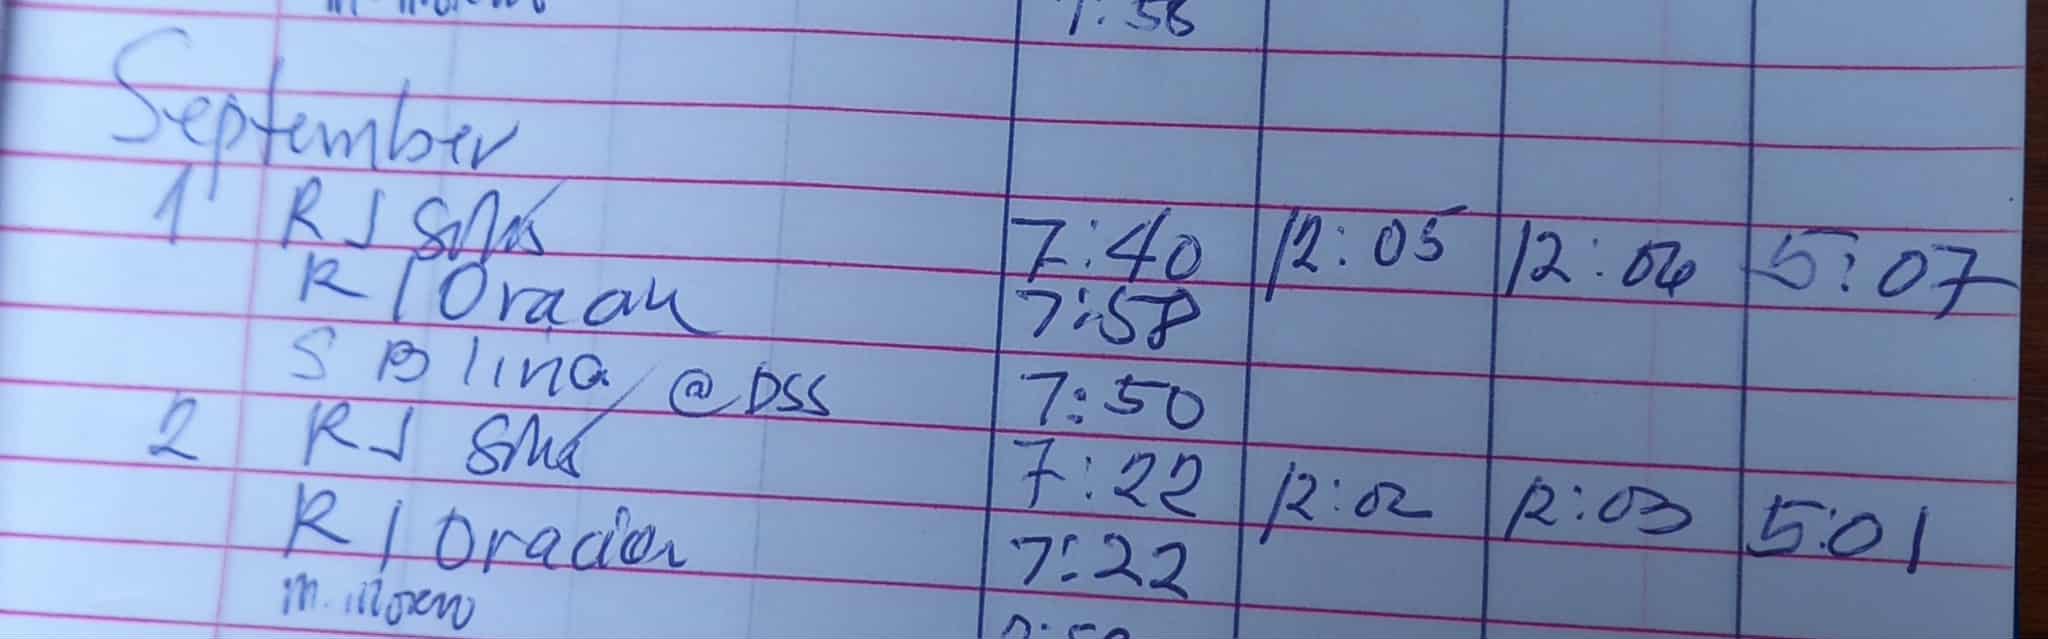 7:58
September
1 R J 7:40 12:05 12:06 5:07
R I Oracion 7:58
S B lina @ DSS 7:50
2 R J 7:22 12:02 12:03 5:01
R I Oracion 7:22
m. moreno